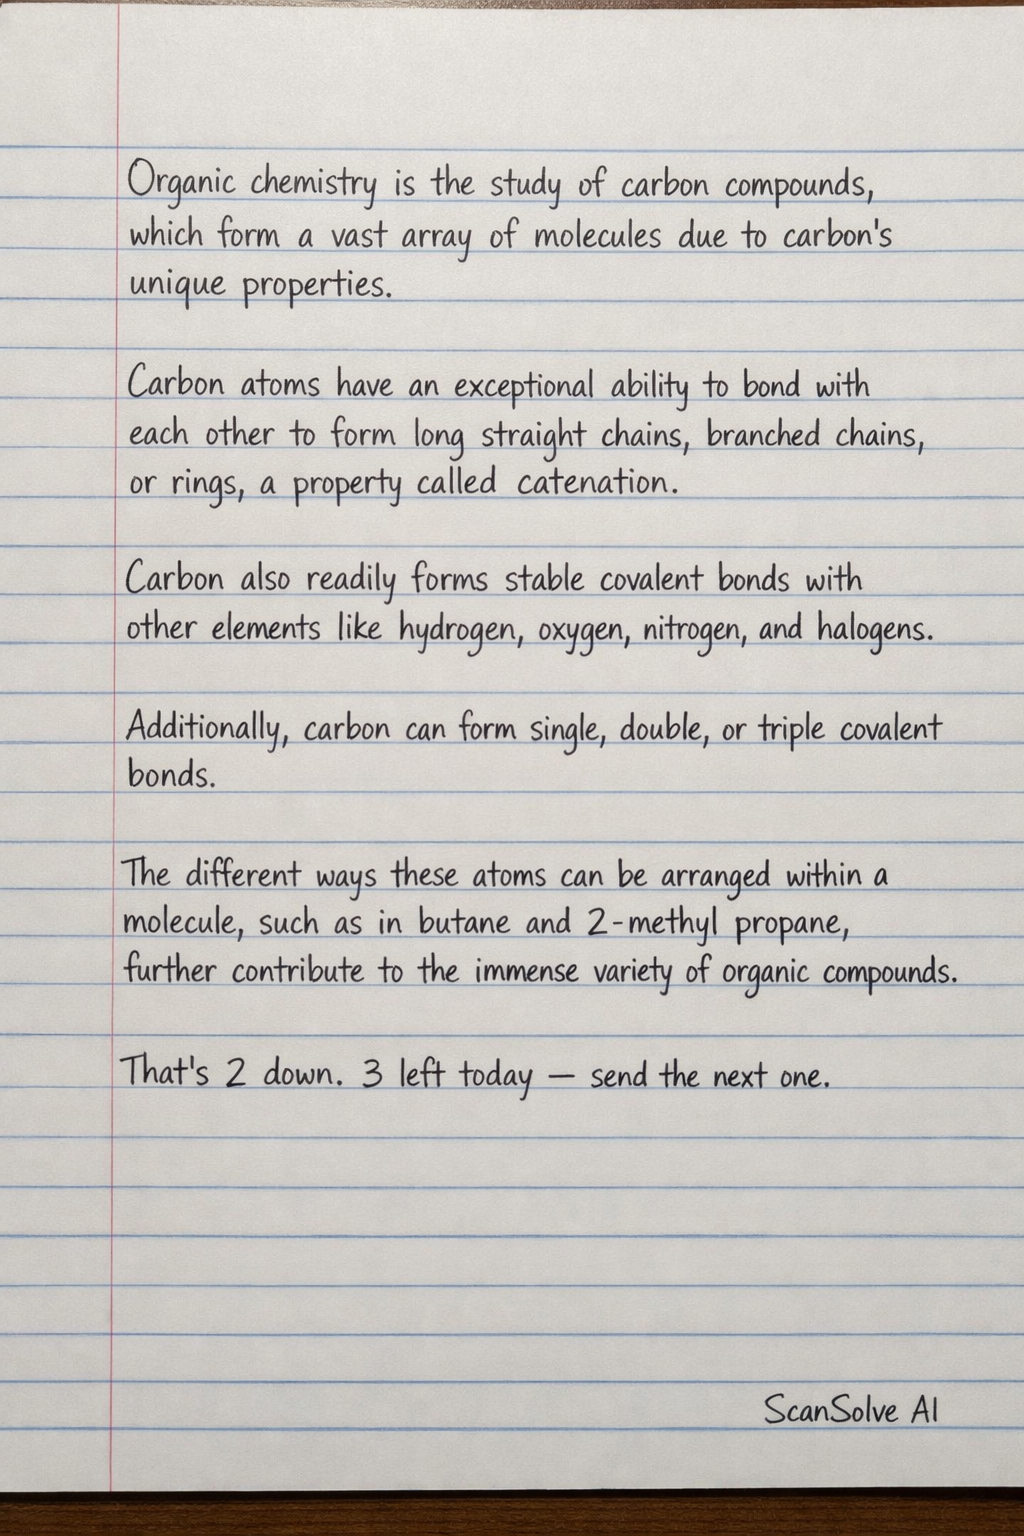 Organic chemistry is the study of carbon compounds,
which form a vast array of molecules due to carbon's
unique properties.
Carbon atoms have an exceptional ability to bond with
each other to form long straight chains, branched chains,
or rings, a property called catenation.
Carbon also readily forms stable covalent bonds with
other elements like hydrogen, oxygen, nitrogen, and halogens.
Additionally, carbon can form single, double, or triple covalent
bonds.
The different ways these atoms can be arranged within a
molecule, such as in butane and 2-methyl propane,
further contribute to the immense variety of organic compounds.
That's 2 down. 3 left today — send the next one.
ScanSolve AI